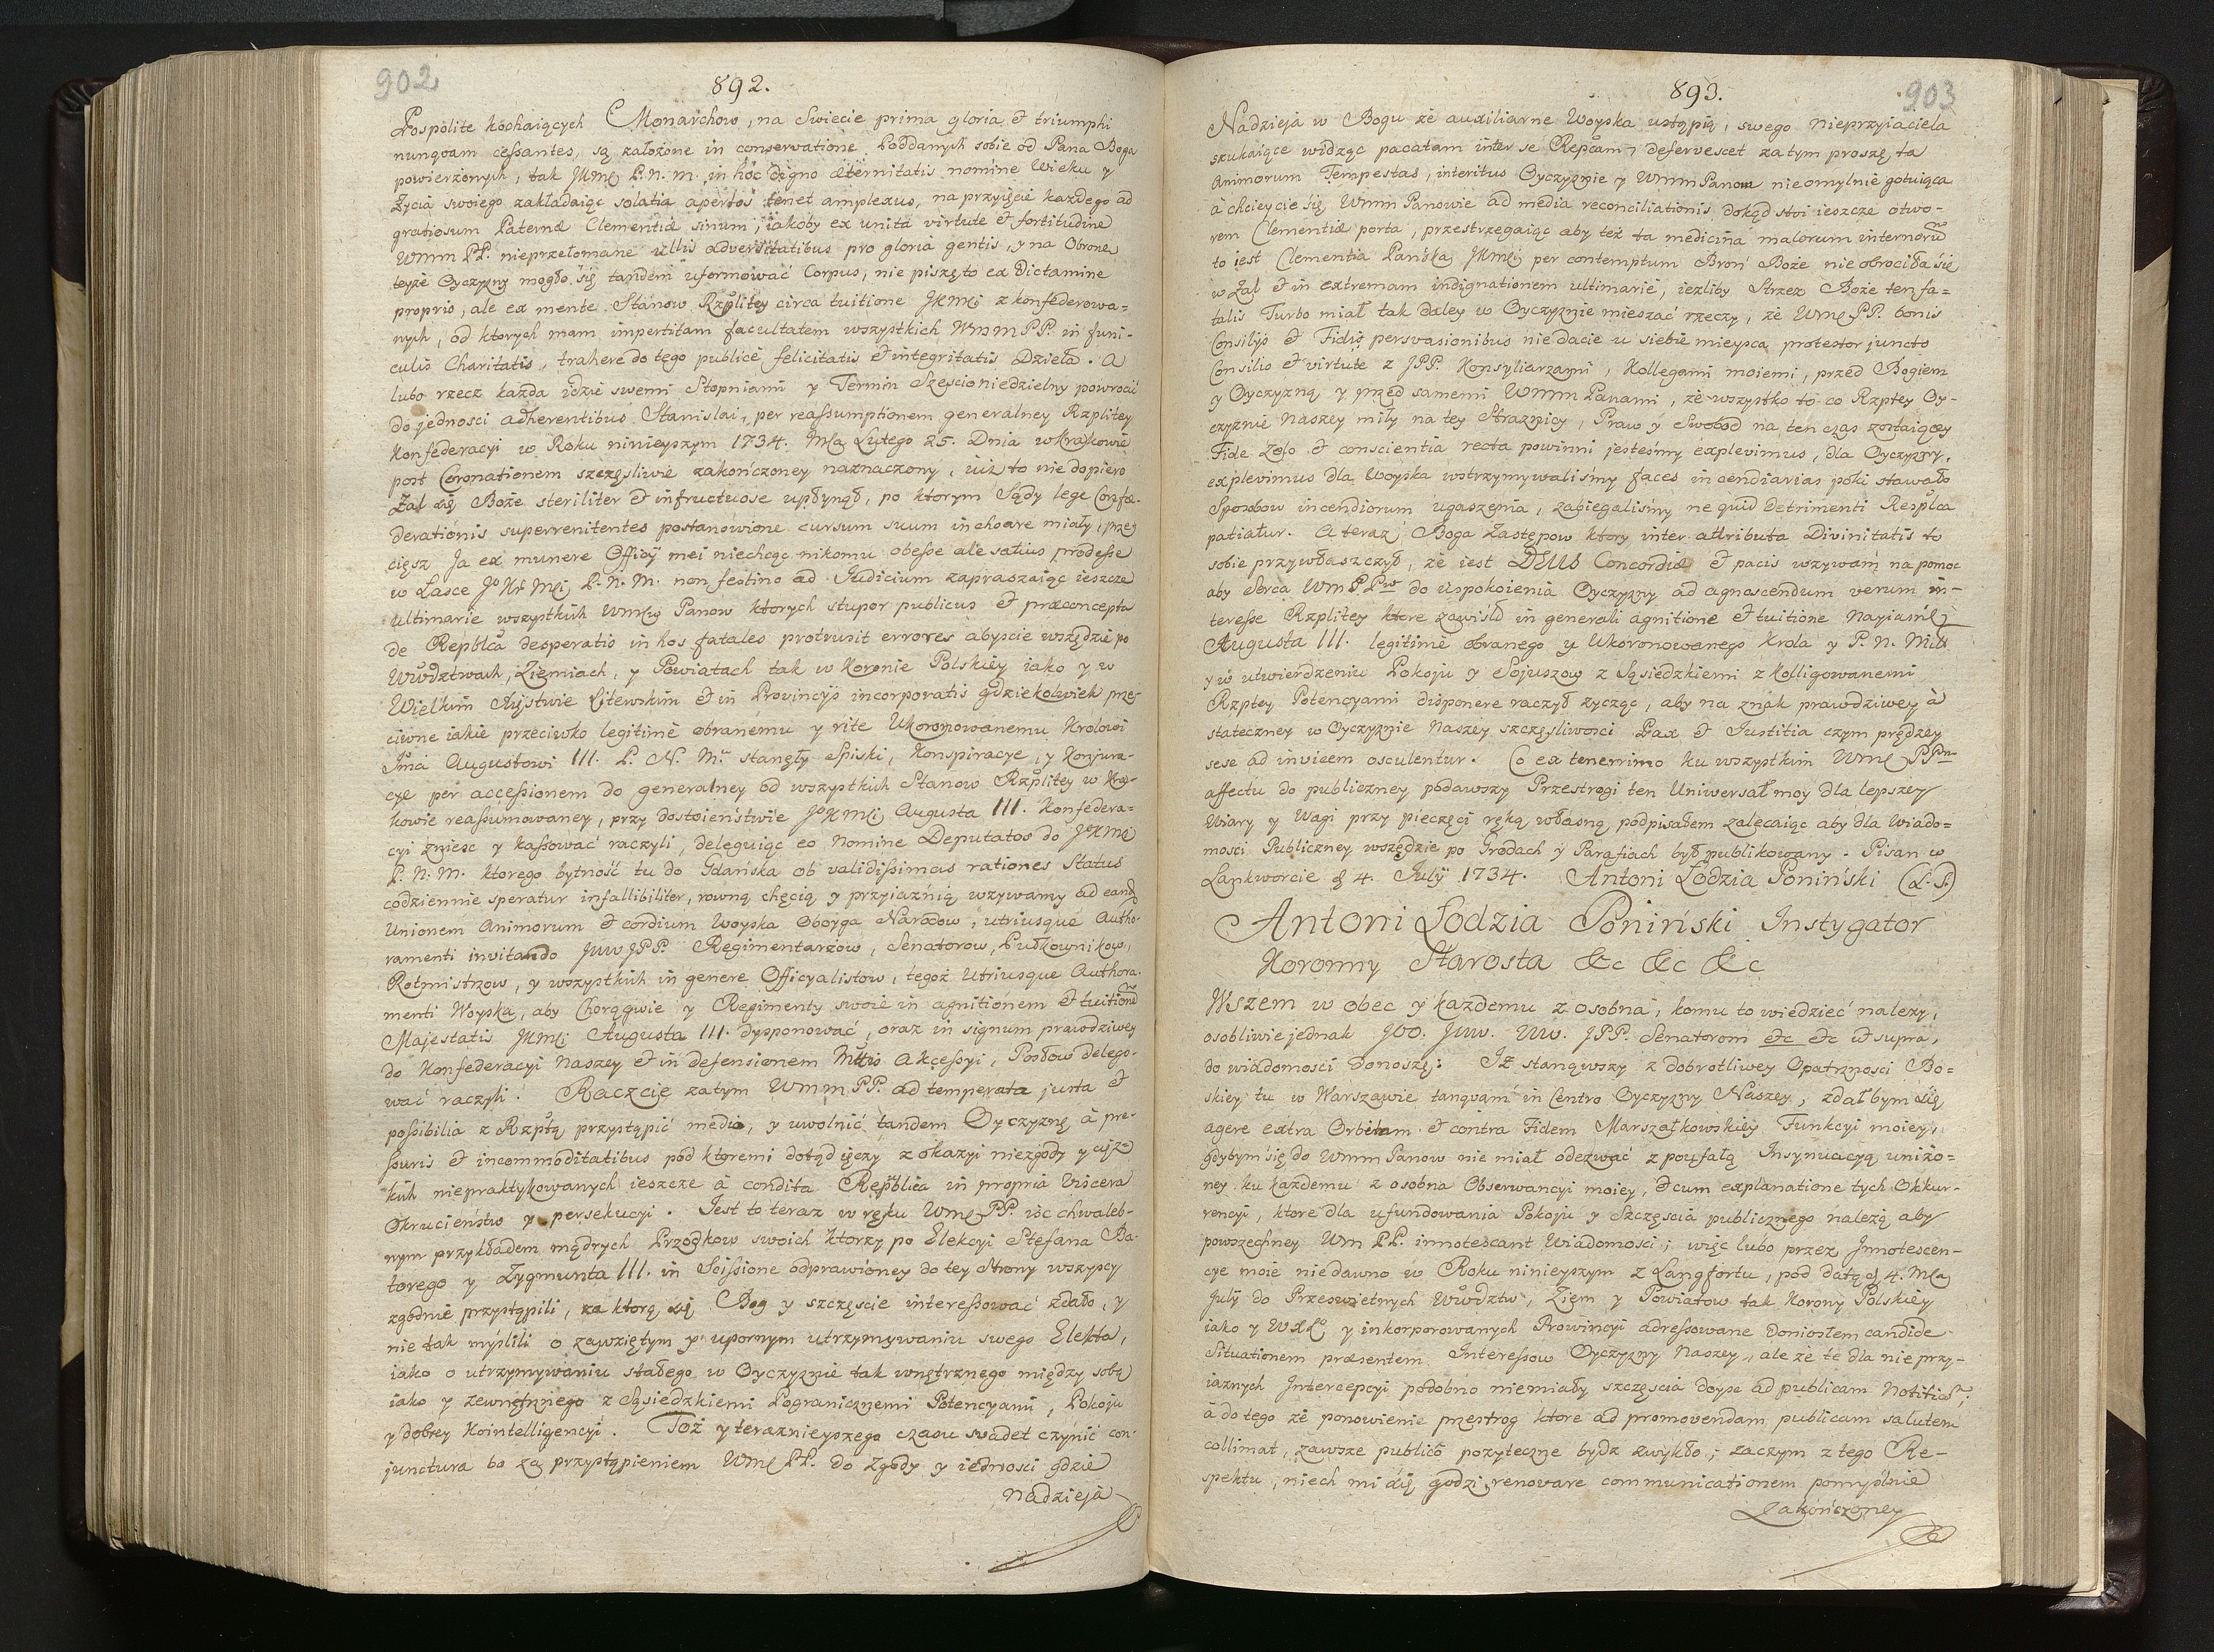 902
892.
Pospolite kochaiących Monarchow, na Swiecie prima gloria & triumphi
nunqvam cessantes, są założone in conservatione Poddanych sobie od Pana Boga
powierzonych, tak JKMć P. N. M. in hoc digno æternitatis nomine Wieku y
Zycia swoiego zakładaiąc solatia apertos tenet amplexus, na przyięcie każdego ad
gratiosum Paternæ Clementiæ sinum, iakoby ex unita virtute & fortitudine
Wmm PP. nieprzełomane ullis adversitatibus pro gloria gentis, y na Obronę
teyże Oyczyzny mogło się tandem uformować Corpus, nie piszę to ex Dictamine
proprio, ale ex mente Stanow Rzplitey circa tuitione JKMci zkonfederowa=
nych, od ktorych mam impertitam facultatem wszystkich WmmPP. in funi-
culis Charitatis, trahere do tego publicè felicitatis & integritatis Dzieła. A
lubo rzecz każda idzie swemi Stopniami y Termin Szescioniedzielny powrocić
do jednosci adherentibus Stanislai, per reassumptionem generalney Rzplitey
Konfederacyi w Roku ninieyszym 1734. Mca Lutego 25. Dnia w Krakowie
post Coronationem szczęsliwie zakończoney naznaczony, iuż to nie dopiero
Żal się Boże steriliter & infructuose upłynął, po ktorym Sądy lege Confæ-
derationis superrenitentes postanowione cursum suum inchoare miały, prze
cięsz Ja ex munere Officij mei niechcąc nikomu obesse ale satius prodesse
w Lasce Jo Kr Mci P. N. M. non festino ad Judicium zapraszaiąc ieszcze
ultimarie wszystkich Wmciow Panow ktorych stupor publicus & præconcepta
de Republca desperatio in hos fatales protrusit errores abyscie wszędzie po
Wwdztwach, Ziemiach, y Powiatach tak w Koronie Polskiey iako y w
Wielkim Xięstwie Litewskim & in Provincijs incorporatis gdziekolwiek prze
ciwne iakie przeciwko legitimè obranemu y rite Ukoronowanemu Krolowi
Jmci Augustowi III. P. N. Mu stanęły Spiski, Konspiracye, y Konjura-
cye per accessionem do generalney od wszystkich Stanow Rzplitey w Kra-
kowie reassumowaney, przy dostoieństwie JoKMci Augusta III. Konfedera=
cyi zniesc y kassować raczyli, deleguiąc eo nomine Deputatos do JoKMci
P. N. M. ktorego bytność tu do Gdańska ob validissimas rationes Status
codziennie speratur infallibiliter, rowną chęcią y przyiaźnią wzywamy ad eand
Unionem Animorum & cordium Woyska Oboyga Narodow, utriusque Autho-
ramenti invitando JWWJPP. Regimentarzow, Senatorow, Pułkownikow,
Rotmistrzow, y wszystkich in genere Officyalistow, tegoż Utriusque Authora-
menti Woyska, aby Chorągwie y Regimenty swoie in agnitionem & tuitione
Majestatis JKMci Augusta III. dysponować, oraz in signum prawdziwey
do Konfederacyi Naszey & in defensionem Mttis Akcessyi, Posłow delego-
wać raczyli. Raczcie zatym Wmm PP. ad temperata justa &
possibilia z Rzptą przystąpić media, y uwolnić tandem Oyczyznę à pre-
ssuris & incommoditatibus pod ktoremi dotąd ięczy z okazyi niezgody y cięż=
kich niepraktykowanych ieszcze à condita Republica in propria Viscera
Okrucieństw y persekucyi. Jest to teraz w ręku Wmć PP. iśc chwaleb-
nym przykładem mądrych Przodkow swoich ktorzy po Elekcyi Stefana Ba-
torego y Zygmunta III. in Scissione odprawioney do tey Strony wszyscy
zgodnie przystąpili, za ktorą się Bog y szczęscie interessować zdało, y
nie tak myslili o zawziętym y upornym utrzymywaniu swego Elekta,
iako o utrzymywaniu stałego w Oyczyznie tak wnętrznego między sobą
iako y zewnętrznego z Sąsiedzkiemi Pogranicznemi Potencyami, Pokoju
y dobrey Kointelligencyi. Toż y teraznieyszego czasu svadet czynić con-
junctura bo za przystąpieniem Wmć PP. do Zgody y iednosci gdzie
Nadzieja
903
893.
Nadzieja w Bogu że auxiliarne Woyska ustąpią, swego nieprzyiaciela
szukaiące widząc pacatam inter se Repcam, defervescet zatym proszę, ta
Animorum Tempestas, interitus Oyczyznie y Wmm Panom nieomylnie gotuiąca
à chcieycie się Wmm Panowie ad media reconciliationis dokąd stoi ieszcze otwo-
rem Clementiæ porta, przestrzegaiąc aby też ta medicina malorum internoru
to iest Clementia Pańska JKMci per contemptum Broń Boże nie obrociła się
w Żal & in extremam indignationem ultimarie, iezliby Strzez Boże ten fa=
talis Turbo miał tak daley w Oyczyznie mieszać rzeczy, że Wmć PP. bonis
Consilijs & Fidis persvasionibus nie dacie u siebie mieysca, protestor juncto
Consilio & virtute z JPP. Konsyliarzami, Kollegami moiemi, przed Bogiem
y Oyczyzną y przed samemi Wmm Panami, że wszystko to co Rzptey Oy-
czyznie Naszey miły na tey Straznicy, Praw y Swobod na ten czas zostaiący
Fide Zelo & conscientia recta powinni jestesmy explevimus, dla Oyczyzny,
explevimus dla Woyska wstrzymywalismy faces incendiarias poki stawało
Sposobow incendiorum ugaszenia, zabiegalismy ne quid Detrimenti Resplca
patiatur. A teraz Boga Zastępow ktory inter attributa Divinitatis to
sobie przywłaszczył, że iest DEUS Concordiæ & pacis wzywam na pomoc
aby Serca Wm P. Pw do Uspokoienia Oyczyzny ad agnoscendum verum in-
teresse Rzplitey ktore zawisło in generali agnitione & tuitione Nayiasń
Augusta III. legitimè obranego y Ukoronowanego Krola y P. N. Mill
y w utwierdzeniu Pokoju y Sojuszow z Sąsiedzkiemi z Kolligowanemi
Rzptey Potencyami disponere raczył życząc, aby na znak prawdziwey à
stateczney w Oyczyznie Naszey szczęsliwosci Pax & Justitia czym prędzey
sese ad invicem osculentur. Co ex tenerrimo ku wszystkim Wmć PPm
affectu do publiczney podawszy Przestrogi ten Uniwersał moy dla lepszey
Wiary y Wagi przy pieczęci ręką własną podpisałem zalecaiąc aby dla Wiado=
mosci Publiczney wszędzie po Grodach y Parafiach był publikowany. Pisan w
Lankworcie d 4. Julij 1734. Antoni Łodzia Poniński (L.S.)
Antoni Łodzia Poniński Instygator
Koronny Starosta &c &c &c
Wszem w obec y każdemu z osobna, komu to wiedzieć nalezy,
osobliwie jednak JOO. JWW. WW. JPP. Senatorom etc etc ut supra,
do wiadomosci donoszę: Iż stanąwszy z dobrotliwey Opatrznosci Bo=
skiey tu w Warszawie tanqvam in Centro Oyczyzny Naszey, zdałbym się
agere extra Orbitam & contra Fidem Marszałkowskiey Funkcyi moiey,
gdybym się do Wmm Panow nie miał odezwać z poufałą Insynuacyą uniżo=
ney ku każdemu z osobna Obserwancyi moiey, & cum explanatione tych Okkur-
rencyi, ktore dla ufundowania Pokoju y Szczęscia publicznego należą, aby
powszechney Wm PP. innotescant Wiadomosci; więc lubo przez Innotescen-
cye moie niedawno w Roku ninieyszym z Langfortu, pod datą d 4. Mca
Julij do Przeswietnych Wwdztw, Ziem y Powiatow tak Korony Polskiey
iako y WXLo y inkorporowanych Prowincyi adressowane doniosłem candide
Situationem præsentem Interessow Oyczyzny Naszey, ale że te dla nie przy-
iaznych Intercepcyi podobno niemiały szczęscia doysc ad publicam Notitia;
à do tego że ponowienie przestrog ktore ad promovendam publicam salutem
collimat, zawsze publico pozyteczne bydz zwykło; zaczym z tego Re-
spektu, niech mi się godzi renovare communicationem pomyslnie
Zakończoney